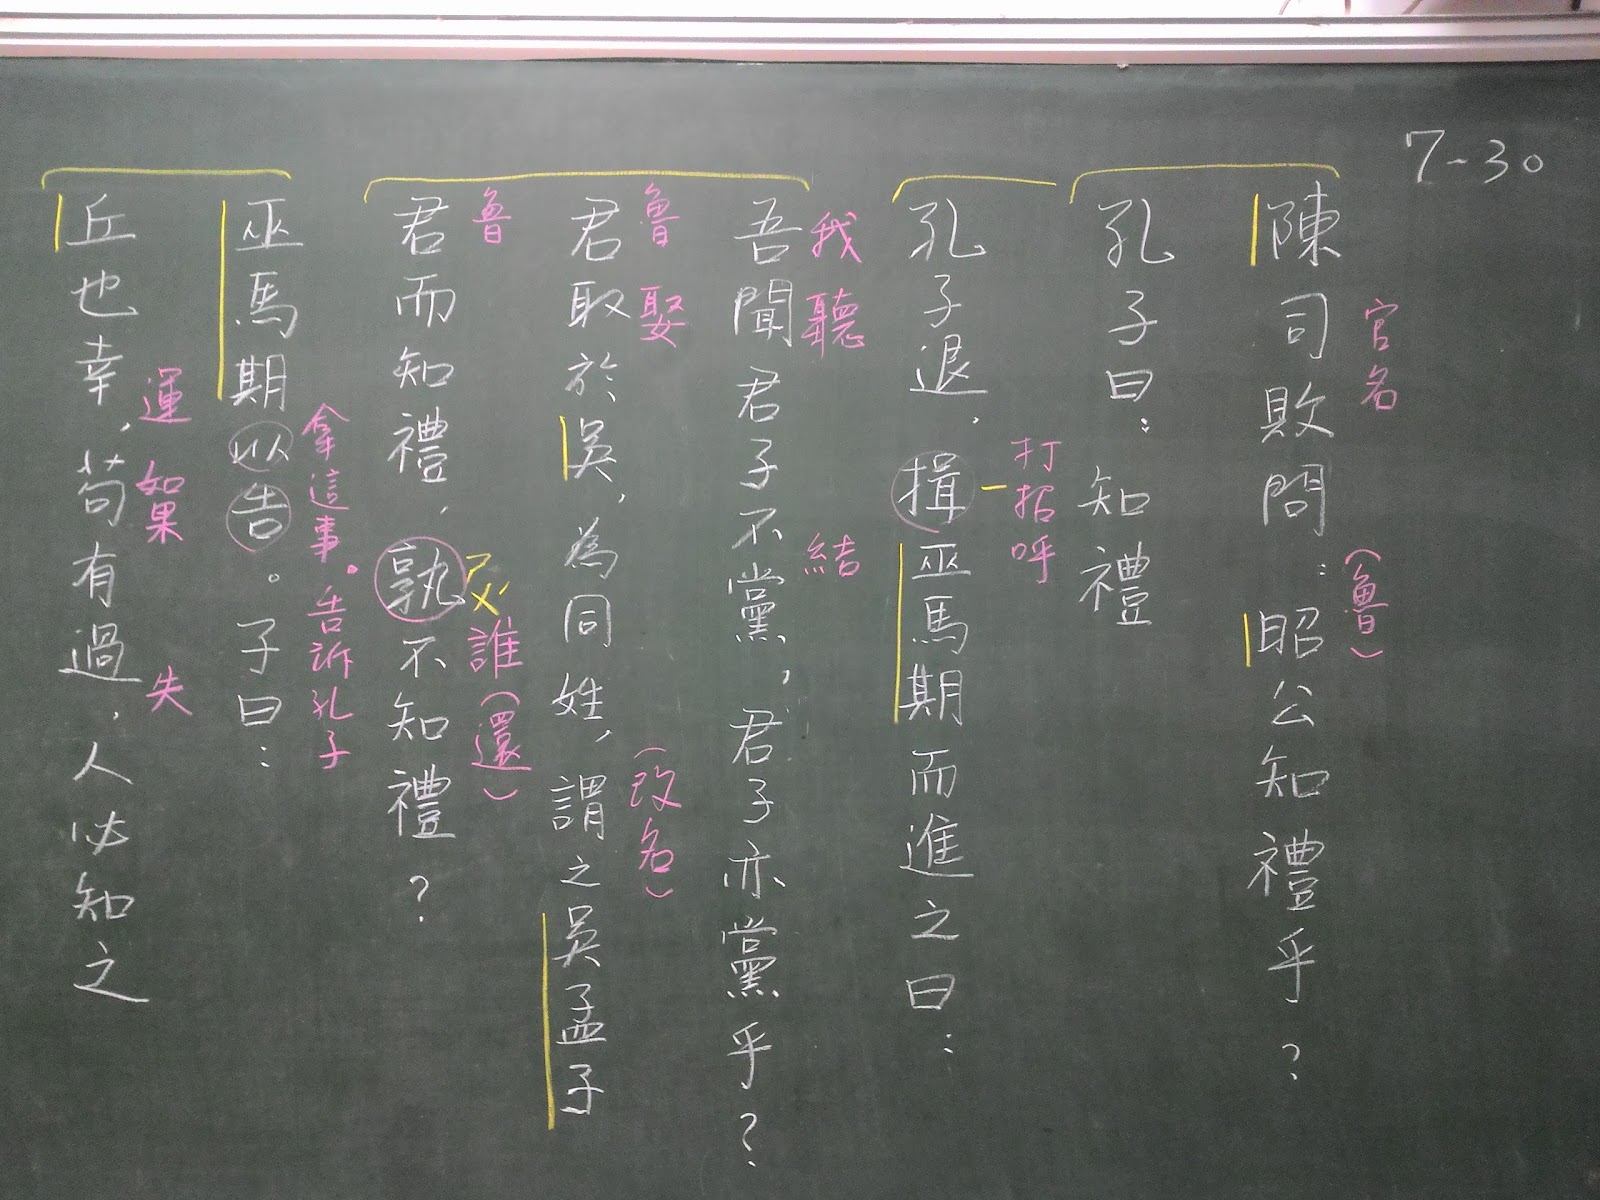 7-30
官名(魯)
陳司敗問:昭公知禮乎?
孔子曰:知禮
打招呼
孔子退,揖巫馬期而進之曰:
我聽結
吾聞君子不黨,君子亦黨乎?
魯娶(改名)
君取於吳,為同姓,謂之吳孟子
魯誰(還)
君而知禮,孰不知禮?
拿這事。告訴孔子
巫馬期以告。子曰:
運如果失
丘也幸,苟有過,人必知之